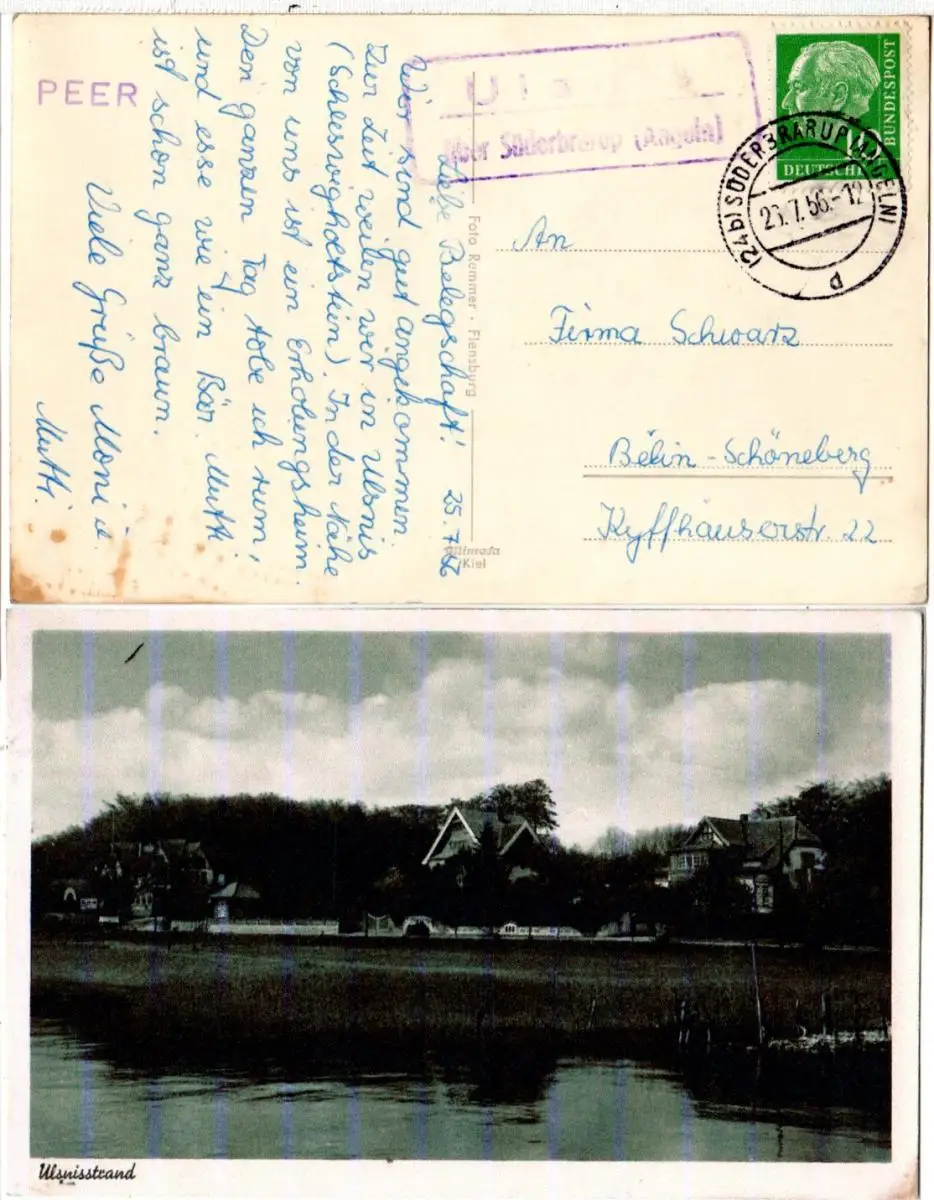 PEER
Ulsnis
über Süderbrarup (Angeln)
DEUTSCHE
BUNDESPOST
(24b) SÜDERBRARUP (ANGELN)
25.7.56.-12
d
Liebe Belegschaft! 25.7.56
Wir sind gut angekommen.
Zur Zeit weilen wir in Ulsnis
(Schleswigholstein). In der Nähe
von uns ist ein Erholungsheim.
Den ganzen Tag tobe ich rum,
und esse wie ein Bär. Mutti
ist schon ganz braun.
Viele Grüße Moni u.
Mutti.
Foto Remmer · Flensburg
Kiel
An
Firma Schwarz
Bélin-Schöneberg
Kyffhäuserstr. 22
Ulsnisstrand